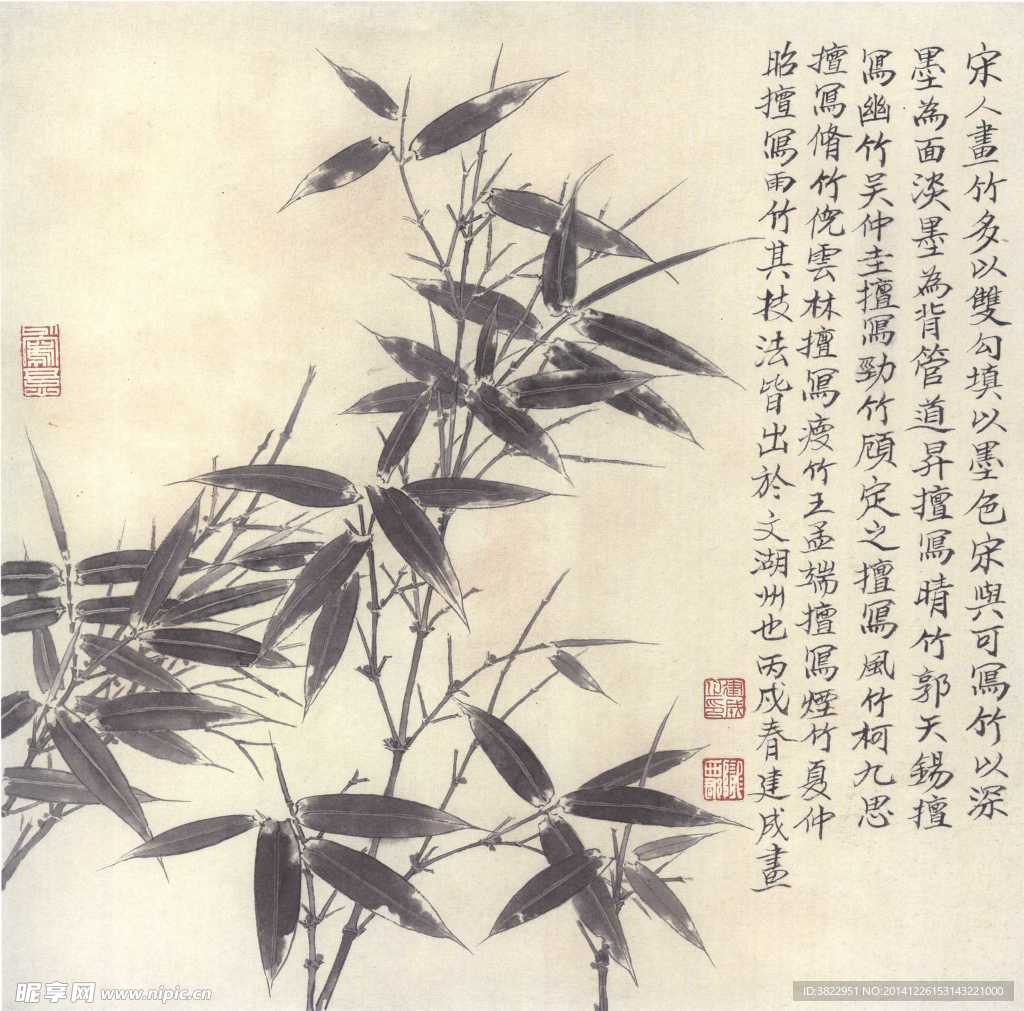 宋人畫竹多以雙勾填以墨色宋與可寫竹以深
墨為面淡墨為背管道昇擅寫晴竹郭天錫擅
寫幽竹吴仲圭擅寫勁竹顾定之擅寫風竹柯九思
擅寫脩竹倪雲林擅寫瘦竹王孟端擅寫煙竹夏仲
昭擅寫雨竹其技法皆出於文湖州也丙戌春建成畫
昵享网 www.nipic.cn
ID:3822951 NO:20141226153143221000